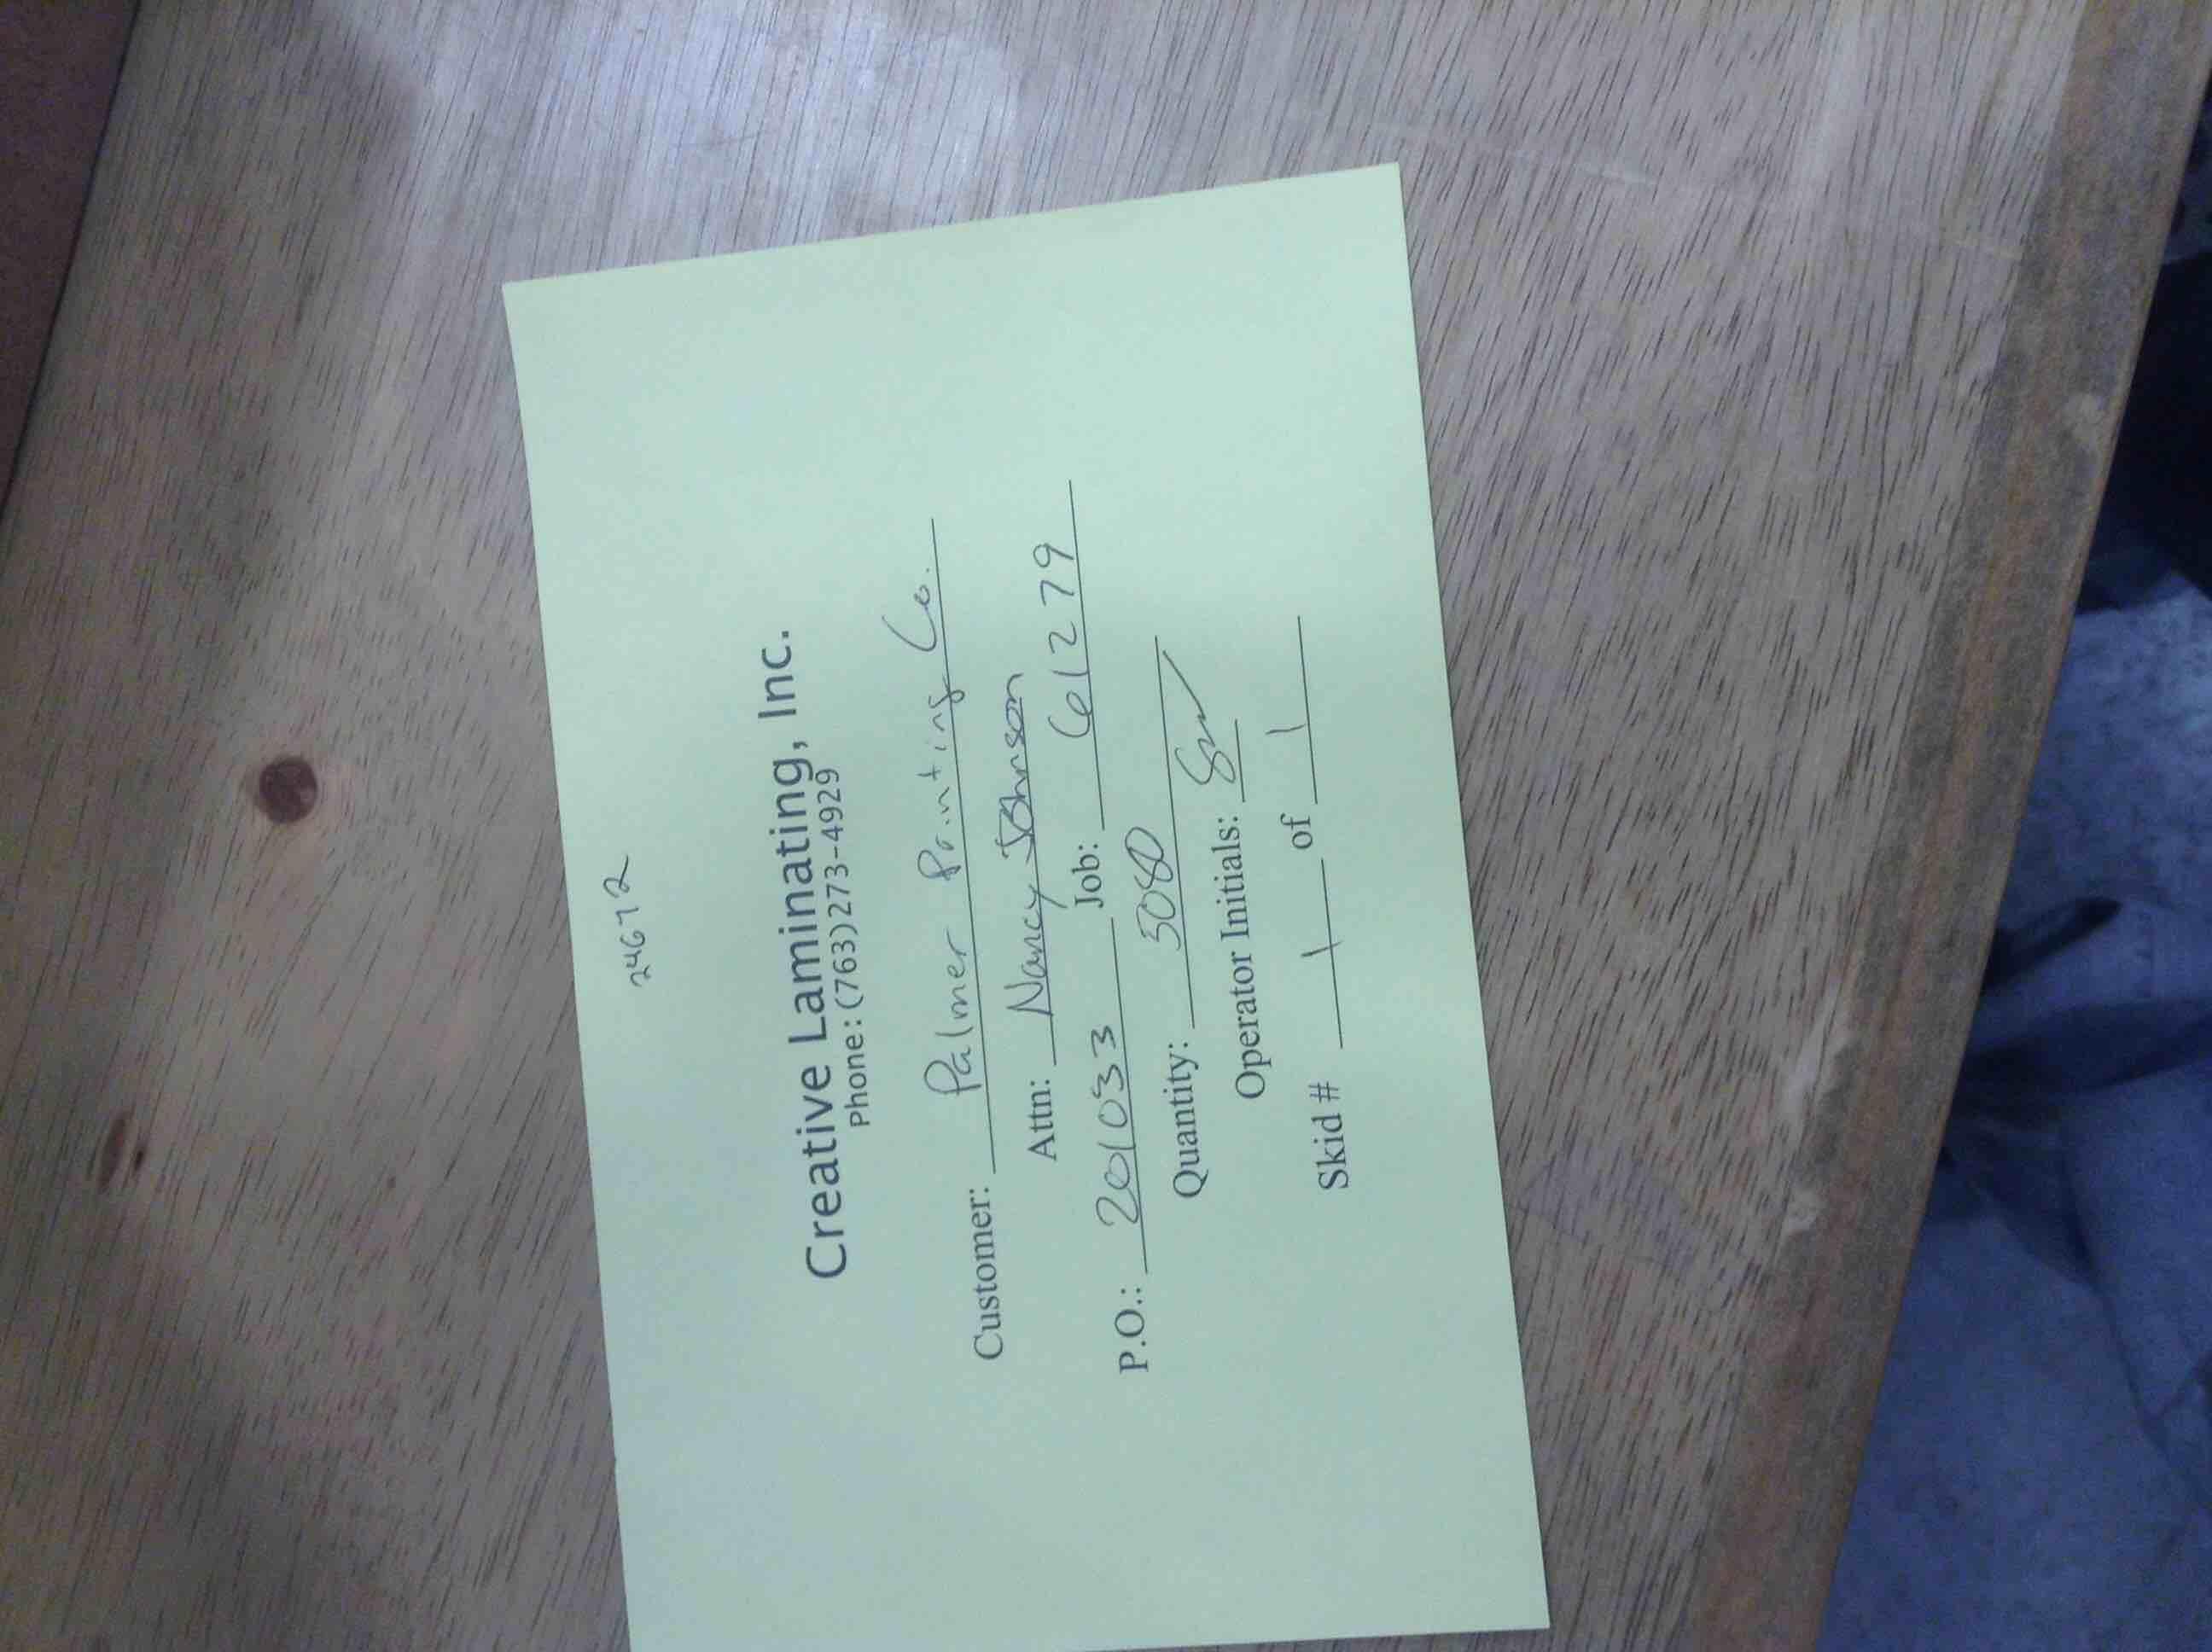 24672
Creative Laminating, Inc.
Phone: (763)273-4929
Customer: Palmer Printing Co.
Attn: Nancy Johnson
P.O.: 201033 Job: 61279
Quantity: 3080
Operator Initials:
Skid # 1 of 1